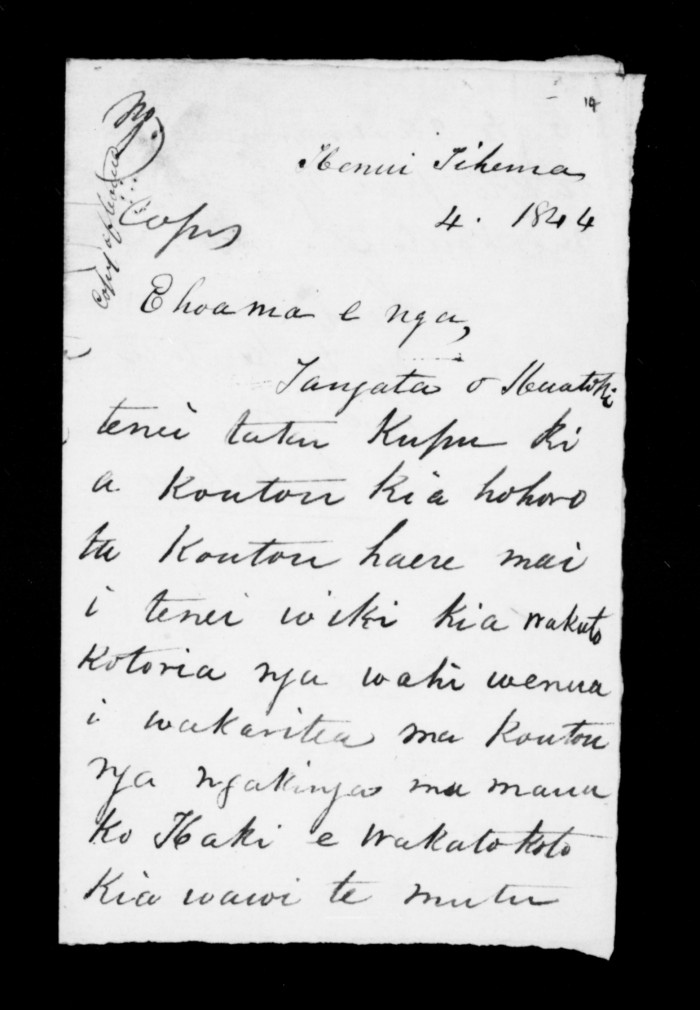 14
No.
Copy of letter
Copy
Henui Tihema
4. 1844
Ehoama e nga,
Tangata o Huatoki
tenei tatu Kupu ki
a Koutou kia hohoro
ta Koutou haere mai
i tenei wiki kia wakato
Kotoria nga wahi wenua
i wakaritea ma Koutou
nga ngakinga ma maua
Ko Haki e wakatokoto
Kia wawi te mutu